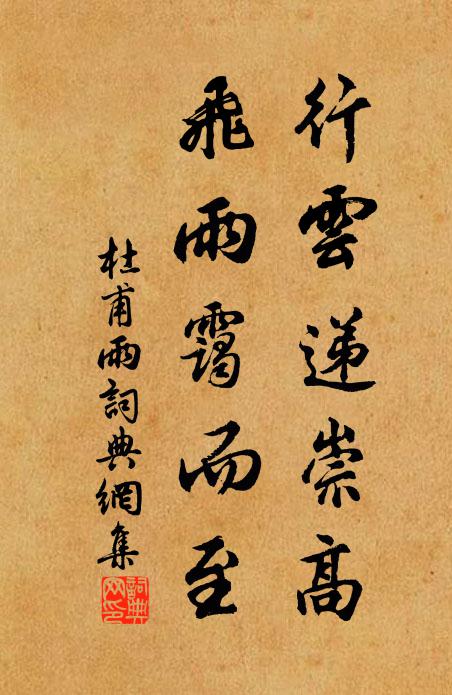 行雲遞崇高
飛雨靄而至
杜甫雨詞典網集
詞典
网印